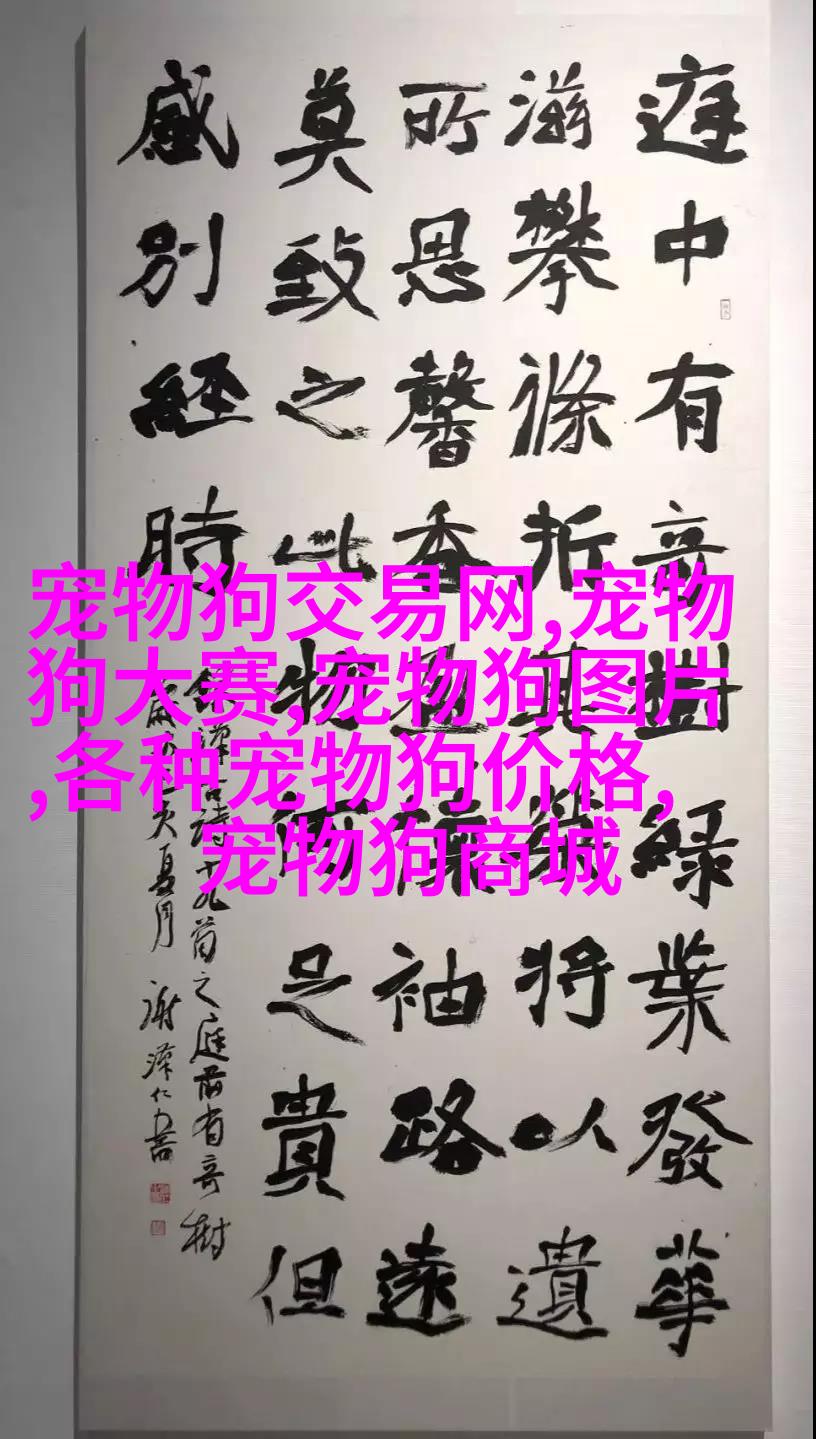 庭中有奇樹綠葉發華
滋攀條折其榮將以遺
所思馨香盈懷袖路遠
莫致之此物何足貴但
感別經時
古詩十九首之庭前有奇樹
亥夏月 謝澤仁書
宠物狗交易网,宠物
狗大赛,宠物狗图片
,各种宠物狗价格,
宠物狗商城